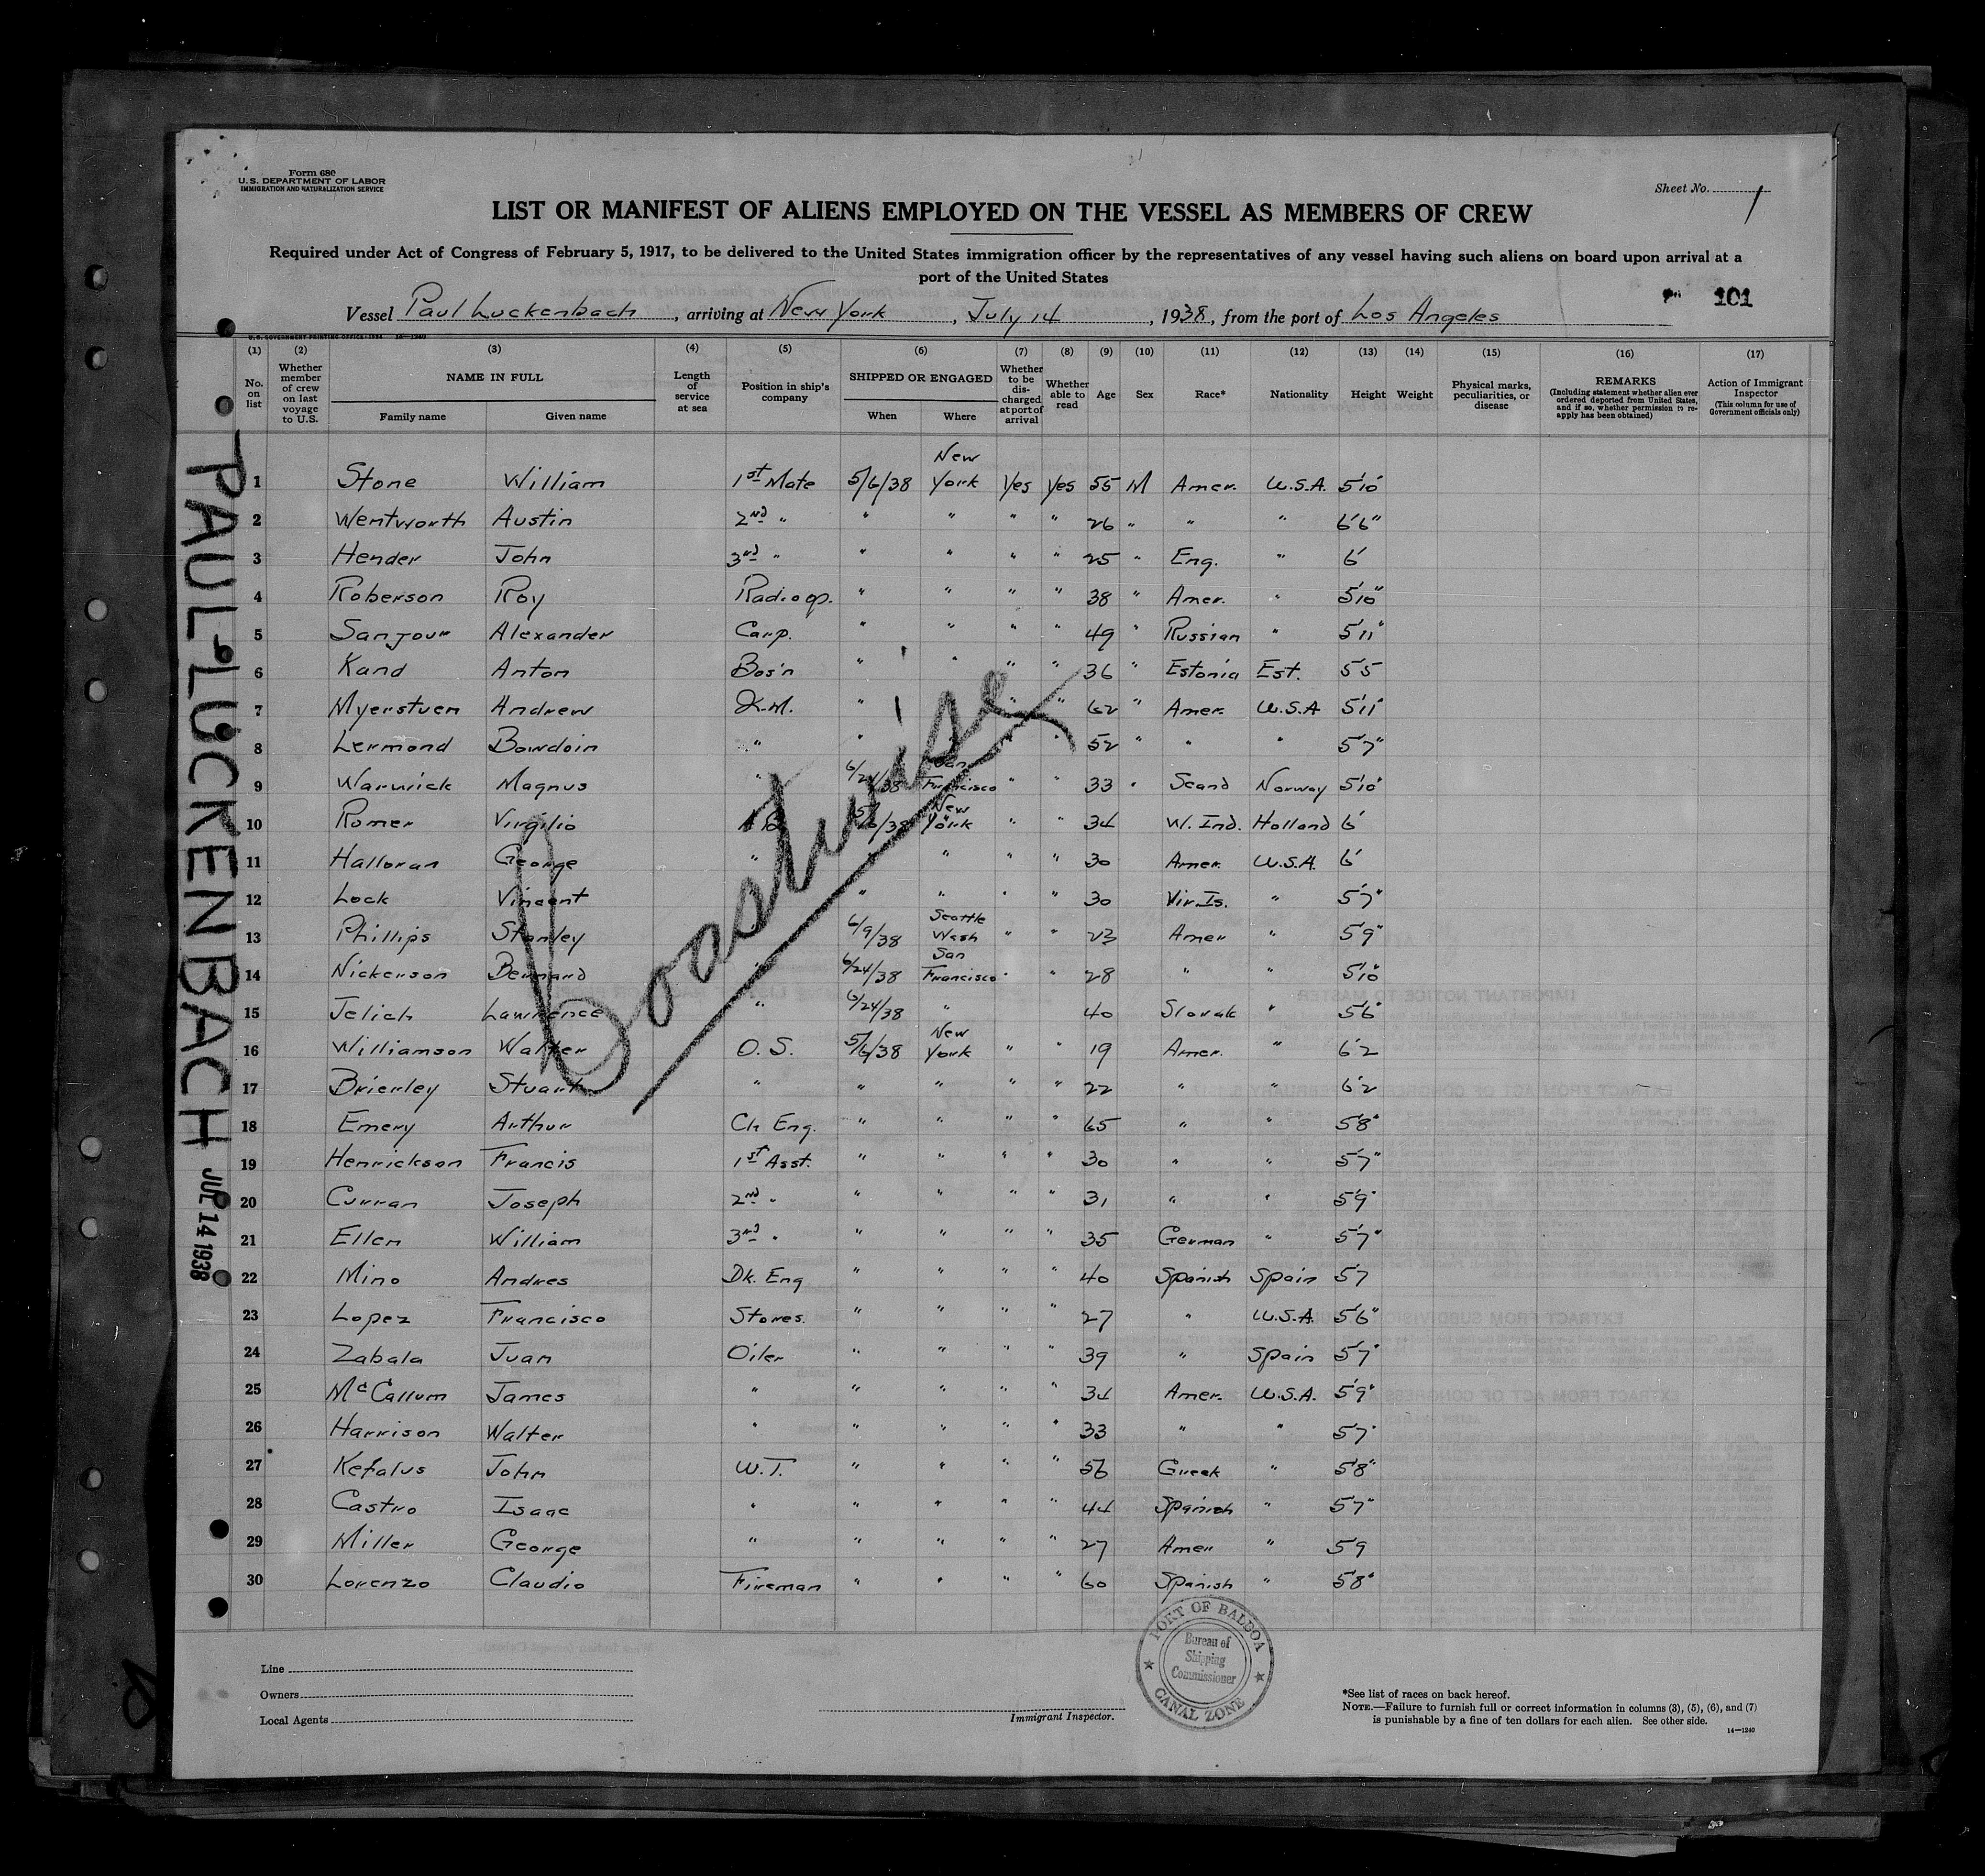 Form 680
U.S. DEPARTMENT OF LABOR
IMMIGRATION AND NATURALIZATION SERVICE
Sheet No. 1
LIST OR MANIFEST OF ALIENS EMPLOYED ON THE VESSEL AS MEMBERS OF CREW
Required under Act of Congress of February 5, 1917, to be delivered to the United States immigration officer by the representatives of any vessel having such aliens on board upon arrival at a
port of the United States
101
Vessel Paul Luckenbach, arriving at New York, July 14, 1938, from the port of Los Angeles
U.S. GOVERNMENT PRINTING OFFICE: 1934 14—1240
(1) (2) (3) (4) (5) (6) (7) (8) (9) (10) (11) (12) (13) (14) (15) (16) (17)
No. on list
Whether member of crew on last voyage to U.S.
NAME IN FULL
Family name Given name
Length of service at sea
Position in ship's company
SHIPPED OR ENGAGED
When Where
Whether to be discharged at port of arrival
Whether able to read
Age Sex Race* Nationality Height Weight
Physical marks, peculiarities, or disease
REMARKS
(Including statement whether alien ever ordered deported from United States, and if so, whether permission to reapply has been obtained)
Action of Immigrant Inspector
(This column for use of Government officials only)
1 Stone William 1st Mate 5/6/38 New York Yes Yes 55 M Amer. U.S.A. 5'10"
2 Wentworth Austin 2nd " " " " " 26 " " " 6'6"
3 Hender John 3rd " " " " " 25 " Eng. " 6'
4 Roberson Roy Radio op. " " " " 38 " Amer. " 5'10"
5 Sanjour Alexander Carp. " " " " 49 " Russian " 5'11"
6 Kand Anton Bos'n " " " " 36 " Estonia Est. 5'5
7 Myerstuen Andrew Q.M. " " " " 62 " Amer. U.S.A 5'11"
8 Lermond Bowdoin " " " " " 52 " " " 5'7"
9 Warwick Magnus " 6/24/38 San Francisco " " 33 " Scand Norway 5'10"
10 Romer Virgilio A.B. 5/6/38 New York " " 34 W. Ind. Holland 6'
11 Halloran George " " " " " 30 Amer. U.S.A. 6'
12 Lock Vincent " " " " " 30 Vir. Is. " 5'7"
13 Phillips Stanley " 6/9/38 Seattle Wash " " 23 Amer " 5'9"
14 Nickerson Bernard " 6/24/38 San Francisco " " 28 " " 5'10"
15 Jelich Lawrence " 6/24/38 " 40 Slovak " 5'6"
16 Williamson Walter O.S. 5/6/38 New York " " 19 Amer. " 6'2
17 Brierley Stuart " " " " " 22 " " 6'2
18 Emery Arthur Ch Eng. " " " " 65 " " 5'8"
19 Henrickson Francis 1st Asst. " " " " 30 " " 5'7"
20 Curran Joseph 2nd " " " " " 31 " " 5'9"
21 Ellen William 3rd " " " " " 35 German " 5'7"
22 Mino Andres Dk. Eng " " " " 40 Spanish Spain 5'7
23 Lopez Francisco Stores. " " " " 27 " U.S.A. 5'6"
24 Zabala Juan Oiler " " " " 39 " Spain 5'7"
25 McCallum James " " " " " 34 Amer. U.S.A. 5'9"
26 Harrison Walter " " " " " 33 " " 5'7"
27 Kefalus John W.T. " " " " 56 Greek " 5'8"
28 Castro Isaac " " " " " 44 Spanish " 5'7"
29 Miller George " " " " " 27 Amer " 5'9
30 Lorenzo Claudio Fireman " " " " 60 Spanish " 5'8"
Coastwise
PAUL LUCKENBACH
JUL 14 1938
Line
Owners
Local Agents
Immigrant Inspector.
PORT OF BALBOA
Bureau of
Shipping
Commissioner
CANAL ZONE
*See list of races on back hereof.
NOTE.—Failure to furnish full or correct information in columns (3), (5), (6), and (7)
is punishable by a fine of ten dollars for each alien. See other side.
14—1240